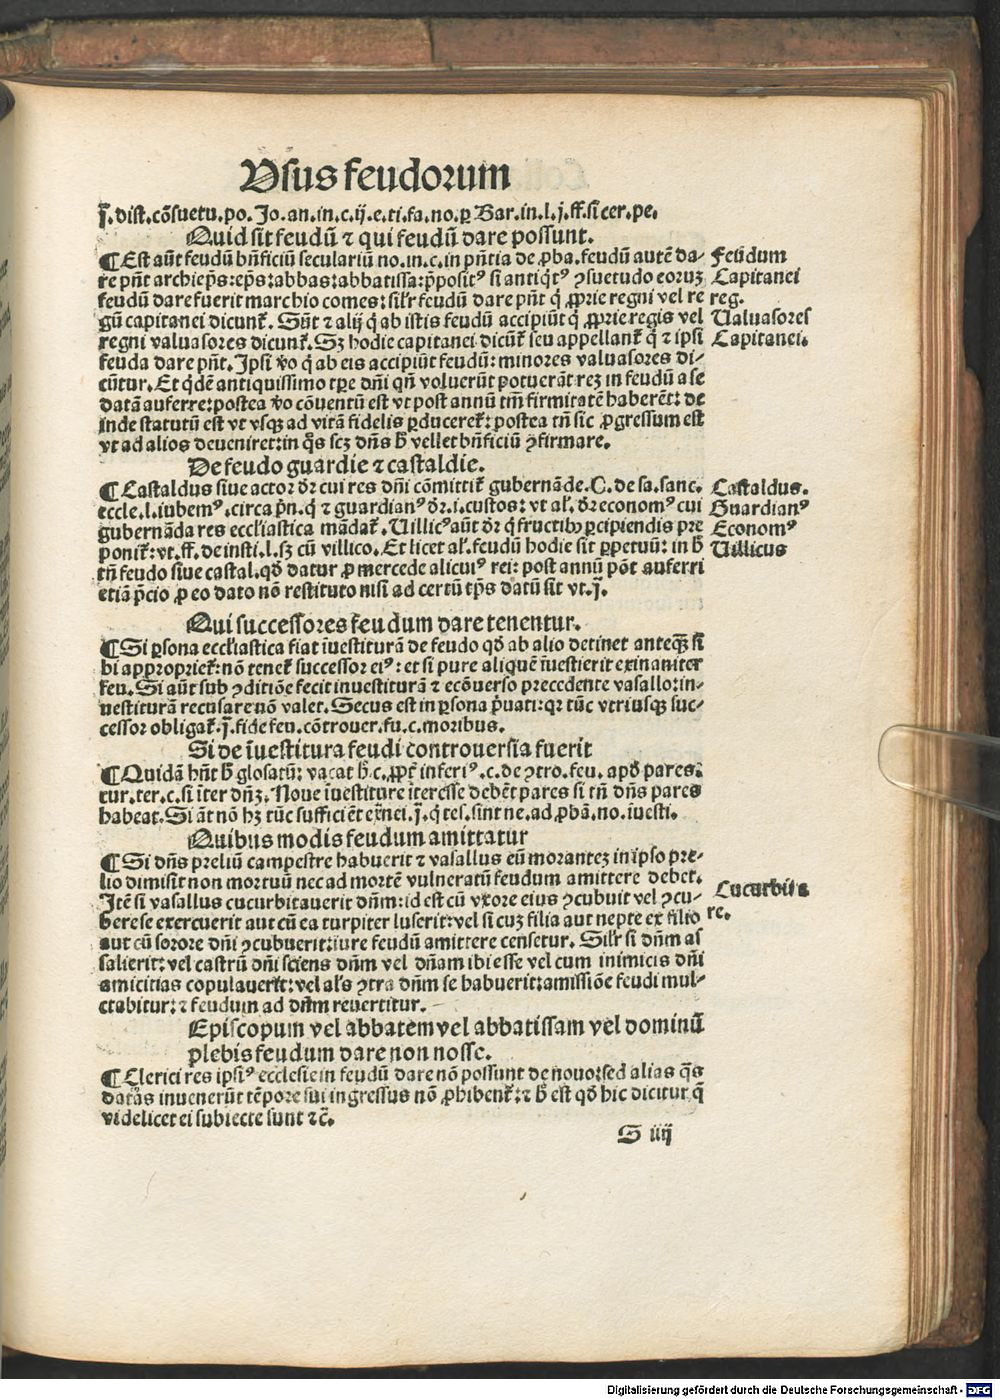 Usus feudorum
j̄. dist. cōsuetu. po. Jo. an. in. c. ij. e. ti. fa. no. ꝑ Bar. in. l. j. ff. si cer. pe.
Quid sit feudū ⁊ qui feudū dare possunt.
¶ Est aūt feudū bn̄ficiū seculariū no. in. c. in pn̄tia de ꝓba. feudū autē da- Feudum
re pn̄t archiep̄s: ep̄s: abbas: abbatissa: p̄positꝰ si antiq̇tꝰ ꝯsuetudo eoruꝫ Capitanei
feudū dare fuerit marchio comes: sil'r feudū dare pn̄t q̇ ꝓprie regni vel re reg.
gū capitanei dicunt᷑. Sūt ⁊ alij q̇ ab istis feudū accipiūt q̇ ꝓprie regis vel Ualuasores
regni valuasores dicunt᷑. Sꝫ hodie capitanei dicūt᷑ seu appellant᷑ q̇ ⁊ ipsi Capitanei.
feuda dare pn̄t. Ipsi v̊o q̇ ab eis accipiūt feudū: minores valuasores di-
cūtur. Et q̇dē antiquissimo tꝑe dn̄i qn̄ voluerūt potuerāt reꝫ in feudū a se
datā auferre: postea v̊o cōuentū est vt post annū tm̄ firmitatē haberēt: de
inde statutū est vt vsqꝫ ad vitā fidelis ꝑducereƭ: postea tn̄ sic ꝓgressum est
vt ad alios deueniret: in q̄s scꝫ dn̄s h̄ vellet bn̄ficiū ꝯfirmare.
De feudo guardie ⁊ castaldie.
¶ Castaldus siue actor dr̄ cui res dn̄i cōmittit᷑ gubernāde. C. de sa. sanc. Castaldus.
eccle. l. iubemꝰ. circa pn̄. q̇ ⁊ guardianꝰ dr̄. i. custos: vt al'. dr̄ economꝰ cui Guardianꝰ
gubernāda res eccl'iastica mādat᷑. Uillicꝰ aūt dr̄ q̇ fructibꝰ ꝑcipiendis pre Economꝰ
ponit᷑: vt. ff. de insti. l. sꝫ cū villico. Et licet al'. feudū hodie sit ꝑpetuū: in h̄ Uillicus
tn̄ feudo siue castal. qd̄ datur ꝓ mercede alicuiꝰ rei: post annū pōt auferri
etiā p̄cio ꝓ eo dato nō restituto nisi ad certū tp̄s datū sit vt. j̄.
Qui successores feudum dare tenentur.
¶ Si ꝑsona eccl'iastica fiat īuestiturā de feudo qd̄ ab alio detinet anteqꝫ si
bi approprieƭ: nō teneƭ successor eiꝰ: et si pure aliquē īuestierit exinaniter
feu. Si aūt sub ꝯditiōe fecit inuestiturā ⁊ ecōuerso precedente vasallo: in-
uestiturā recusare nō valet. Secus est in ꝑsona p̄uati: qꝛ tūc vtriusqꝫ suc-
cessor obligat᷑. j̄. fide feu. cōtrouer. fu. c. moribus.
Si de īuestitura feudi controuersia fuerit
¶ Quidā hn̄t h̄ glosatū: vacat h̄. c. ꝓpt̄ inferiꝰ. c. de ꝯtro. feu. apd̄ pares.
tur. ter. c. si īter dn̄ꝫ. Noue īuestiture īteresse debēt pares si tn̄ dn̄s pares
habeat. Si āt nō hꝫ tūc sufficiēt ex̄nei. j̄. q̇ tes. sint ne. ad ꝓbā. no. iuesti.
Quibus modis feudum amittatur
¶ Si dn̄s preliū campestre habuerit ⁊ vasallus eū moranteꝫ in ipso pre-
lio dimisit non mortuū nec ad mortē vulneratū feudum amittere debet.
Jtē si vasallus cucurbitauerit dn̄m: id est cū vxore eius ꝯcubuit vel ꝯcu- Cucurbita
bere se exercuerit aut cū ea turpiter luserit: vel si cuꝫ filia aut nepte ex filio re.
aut cū sorore dn̄i ꝯcubuerit: iure feudū amittere censetur. Sil'r si dn̄m as
salierit: vel castrū dn̄i sciens dn̄m vel dn̄am ibi esse vel cum inimicis dn̄i
amicitias copulauerit: vel al's ꝯtra dn̄m se habuerit: amissiōe feudi mul-
ctabitur: ⁊ feudum ad dn̄m reuertitur.
Episcopum vel abbatem vel abbatissam vel dominū
plebis feudum dare non posse.
¶ Clerici res ipsiꝰ ecclesie in feudū dare nō possunt de nouo: sed alias q̄s
datas inuenerūt tēpore sui ingressus nō ꝓhibent᷑: ⁊ h̄ est qd̄ hic dicitur q̄
videlicet ei subiecte sunt ⁊c̄.
S iiij
Digitalisierung gefördert durch die Deutsche Forschungsgemeinschaft - DFG